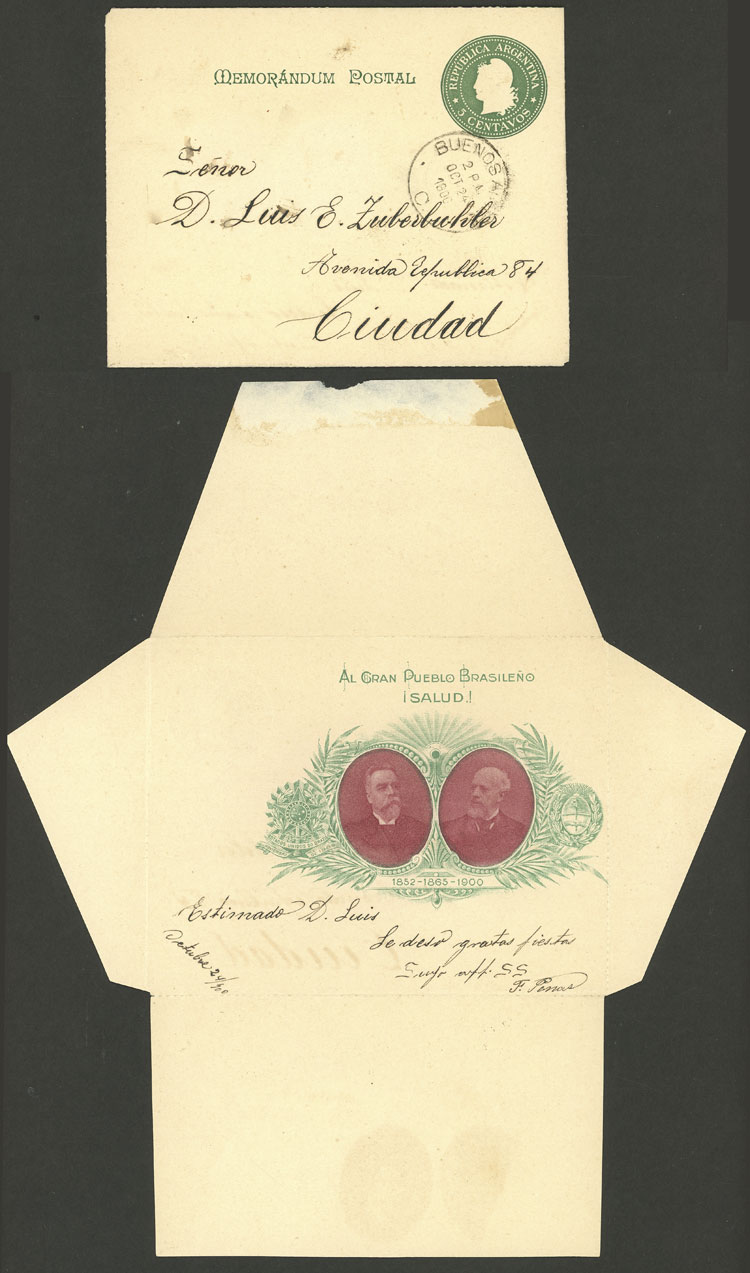 MEMORÁNDUM POSTAL
REPÚBLICA ARGENTINA
5 CENTAVOS
BUENOS A
2 P.M.
OCT 24
190
C
Señor
D. Luis E. Zuberbuhler
Avenida Republica 84
Ciudad
AL GRAN PUEBLO BRASILEÑO
¡SALUD!
1852-1865-1900
Estimado D. Luis
Le deso gratas fiestas
Octubre 24/900
SS
F.